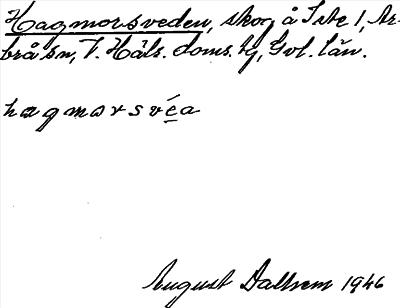 Hagmorsveden, skog å Iste 1, Ar-
brå sn, V. Häls. doms. hg, Gvl. län.
hagmorsvéa
August Dalhem 1946